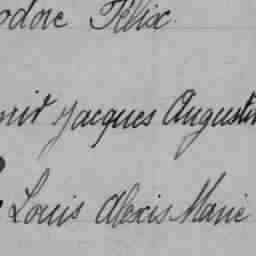 odore Félix
Jacques Augustin
Louis Alexis Marie